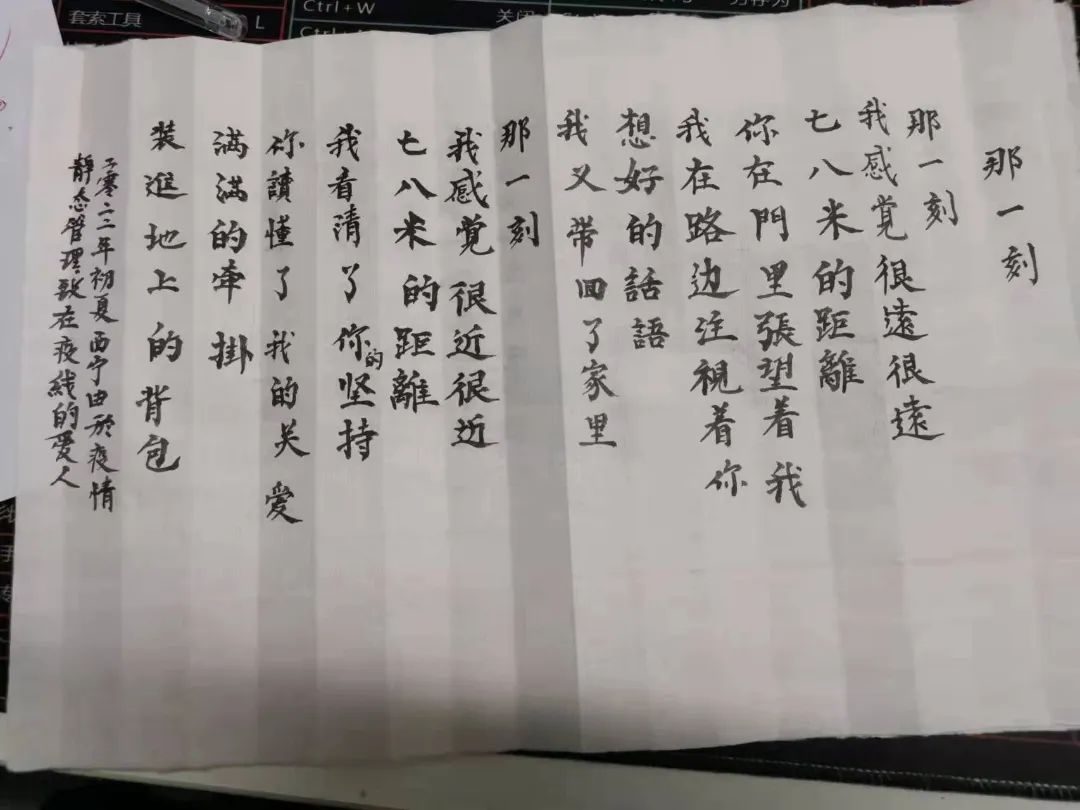 那一刻
那一刻
我感觉很遠很遠
七八米的距離
你在門里張望着我
我在路边注視着你
想好的話語
我又带回了家里
那一刻
我感觉很近很近
七八米的距離
我看清了你的坚持
你讀懂了我的关爱
满满的牵掛
装進地上的背包
二零二二年初夏西宁由於疫情
靜态管理致在疫线的爱人
套索工具 L
Ctrl+W
关闭